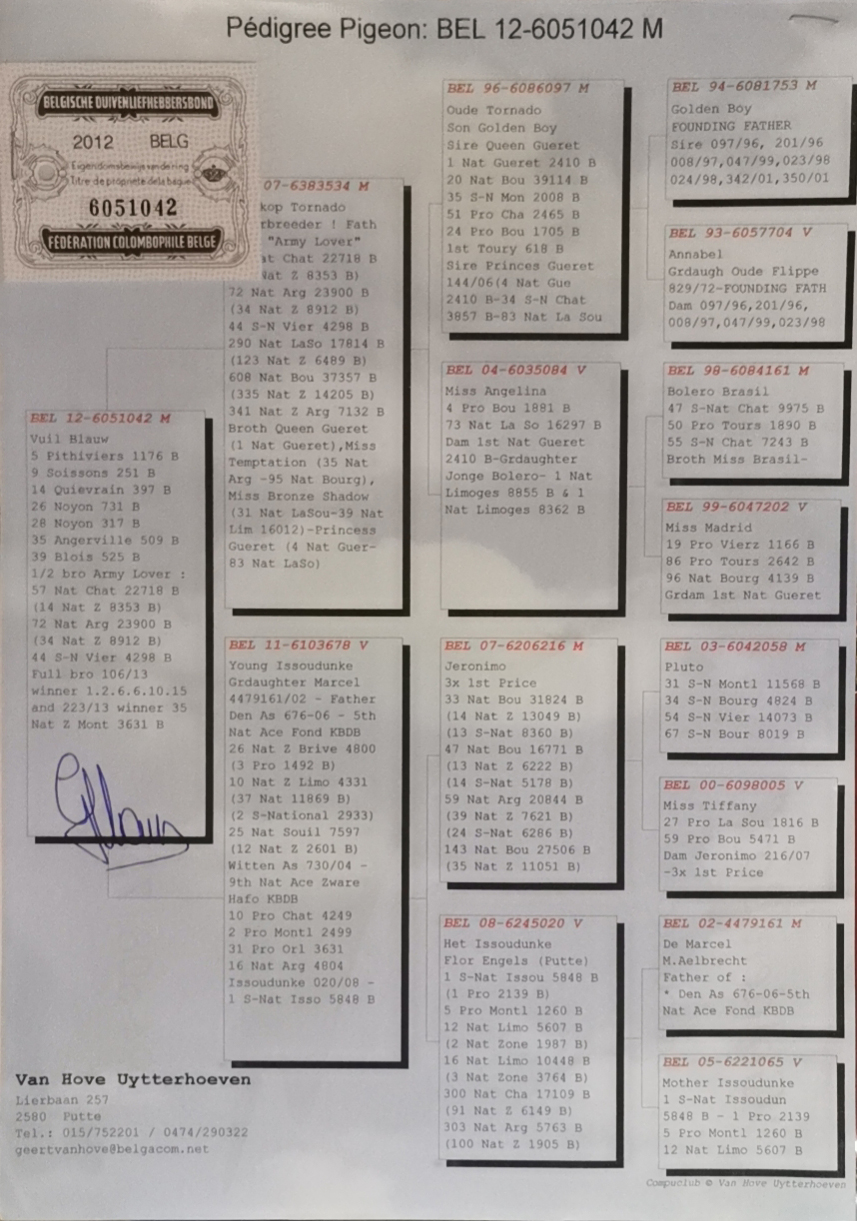 Pédigree Pigeon: BEL 12-6051042 M
BELGISCHE DUIVENLIEFHEBBERSBOND
2012 BELG
Eigendomsbewijs van de ring
Titre de propriété de la bague
6051042
FÉDÉRATION COLOMBOPHILE BELGE
BEL 12-6051042 M
Vuil Blauw
5 Pithiviers 1176 B
9 Soissons 251 B
14 Quievrain 397 B
26 Noyon 731 B
28 Noyon 317 B
35 Angerville 509 B
39 Blois 525 B
1/2 bro Army Lover :
57 Nat Chat 22718 B
(14 Nat Z 8353 B)
72 Nat Arg 23900 B
(34 Nat Z 8912 B)
44 S-N Vier 4298 B
Full bro 106/13
winner 1.2.6.6.10.15
and 223/13 winner 35
Nat Z Mont 3631 B
07-6383534 M
kop Tornado
rbreeder ! Fath
"Army Lover"
at Chat 22718 B
Nat Z 8353 B)
72 Nat Arg 23900 B
(34 Nat Z 8912 B)
44 S-N Vier 4298 B
290 Nat LaSo 17814 B
(123 Nat Z 6489 B)
608 Nat Bou 37357 B
(335 Nat Z 14205 B)
341 Nat Z Arg 7132 B
Broth Queen Gueret
(1 Nat Gueret),Miss
Temptation (35 Nat
Arg -95 Nat Bourg),
Miss Bronze Shadow
(31 Nat LaSou-39 Nat
Lim 16012)-Princess
Gueret (4 Nat Guer-
83 Nat LaSo)
BEL 11-6103678 V
Young Issoudunke
Grdaughter Marcel
4479161/02 - Father
Den As 676-06 - 5th
Nat Ace Fond KBDB
26 Nat Z Brive 4800
(3 Pro 1492 B)
10 Nat Z Limo 4331
(37 Nat 11869 B)
(2 S-National 2933)
25 Nat Souil 7597
(12 Nat Z 2601 B)
Witten As 730/04 -
9th Nat Ace Zware
Hafo KBDB
10 Pro Chat 4249
2 Pro Montl 2499
31 Pro Orl 3631
16 Nat Arg 4804
Issoudunke 020/08 -
1 S-Nat Isso 5848 B
BEL 96-6086097 M
Oude Tornado
Son Golden Boy
Sire Queen Gueret
1 Nat Gueret 2410 B
20 Nat Bou 39114 B
35 S-N Mon 2008 B
51 Pro Cha 2465 B
24 Pro Bou 1705 B
1st Toury 618 B
Sire Princes Gueret
144/06(4 Nat Gue
2410 B-34 S-N Chat
3857 B-83 Nat La Sou
BEL 04-6035084 V
Miss Angelina
4 Pro Bou 1881 B
73 Nat La So 16297 B
Dam 1st Nat Gueret
2410 B-Grdaughter
Jonge Bolero- 1 Nat
Limoges 8855 B & 1
Nat Limoges 8362 B
BEL 07-6206216 M
Jeronimo
3x 1st Price
33 Nat Bou 31824 B
(14 Nat Z 13049 B)
(13 S-Nat 8360 B)
47 Nat Bou 16771 B
(13 Nat Z 6222 B)
(14 S-Nat 5178 B)
59 Nat Arg 20844 B
(39 Nat Z 7621 B)
(24 S-Nat 6286 B)
143 Nat Bou 27506 B
(35 Nat Z 11051 B)
BEL 08-6245020 V
Het Issoudunke
Flor Engels (Putte)
1 S-Nat Issou 5848 B
(1 Pro 2139 B)
5 Pro Montl 1260 B
12 Nat Limo 5607 B
(2 Nat Zone 1987 B)
16 Nat Limo 10448 B
(3 Nat Zone 3764 B)
300 Nat Cha 17109 B
(91 Nat Z 6149 B)
303 Nat Arg 5763 B
(100 Nat Z 1905 B)
BEL 94-6081753 M
Golden Boy
FOUNDING FATHER
Sire 097/96, 201/96
008/97,047/99,023/98
024/98,342/01,350/01
BEL 93-6057704 V
Annabel
Grdaugh Oude Flippe
829/72-FOUNDING FATH
Dam 097/96,201/96,
008/97,047/99,023/98
BEL 98-6084161 M
Bolero Brasil
47 S-Nat Chat 9975 B
50 Pro Tours 1890 B
55 S-N Chat 7243 B
Broth Miss Brasil-
BEL 99-6047202 V
Miss Madrid
19 Pro Vierz 1166 B
86 Pro Tours 2642 B
96 Nat Bourg 4139 B
Grdam 1st Nat Gueret
BEL 03-6042058 M
Pluto
31 S-N Montl 11568 B
34 S-N Bourg 4824 B
54 S-N Vier 14073 B
67 S-N Bour 8019 B
BEL 00-6098005 V
Miss Tiffany
27 Pro La Sou 1816 B
59 Pro Bou 5471 B
Dam Jeronimo 216/07
-3x 1st Price
BEL 02-4479161 M
De Marcel
M.Aelbrecht
Father of :
* Den As 676-06-5th
Nat Ace Fond KBDB
BEL 05-6221065 V
Mother Issoudunke
1 S-Nat Issoudun
5848 B - 1 Pro 2139
5 Pro Montl 1260 B
12 Nat Limo 5607 B
Van Hove Uytterhoeven
Lierbaan 257
2580 Putte
Tel.: 015/752201 / 0474/290322
geertvanhove@belgacom.net
Compuclub © Van Hove Uytterhoeven